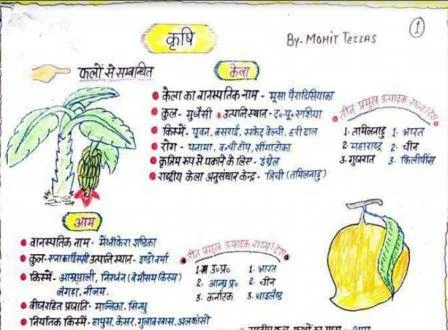 1
कृषि
By- MOHIT TEZZAS
फलों से सम्बन्धित
केला
केला का वानस्पतिक नाम - मूसा पैराडिसियाका
कुल - मुसेसी उत्पत्ति स्थान - द०पू० एशिया
किस्में - पूवन, बसराई, सफेद वेल्ची, हरी छाल
रोग - पनामा, बन्चीटॉप, सीगाटोका
कृत्रिम रूप से पकाने के लिए - इथ्रेल
राष्ट्रीय केला अनुसंधान केन्द्र - त्रिची (तमिलनाडु)
तीन प्रमुख उत्पादक राज्य/देश
1- तमिलनाडु 1- भारत
2- महाराष्ट्र 2- चीन
3. गुजरात 3- फिलीपींस
आम
वानस्पतिक नाम - मैंजीफेरा इण्डिका
कुल- उत्पत्ति स्थान - इण्डो वर्मा
किस्में - आम्रपाली, निरंजन (बेमौसम किस्म)
लंगड़ा, नीलम,
बीज रहित प्रजाति - मल्लिका, सिन्धु
निर्यातक किस्में - हापुस, केसर, गुलाबखास, अलफांसो
तीन प्रमुख उत्पादक राज्य/देश
1- उ०प्र० 1- भारत
2- आन्ध्र प्र० 2- चीन
3- कर्नाटक 3- थाइलैण्ड